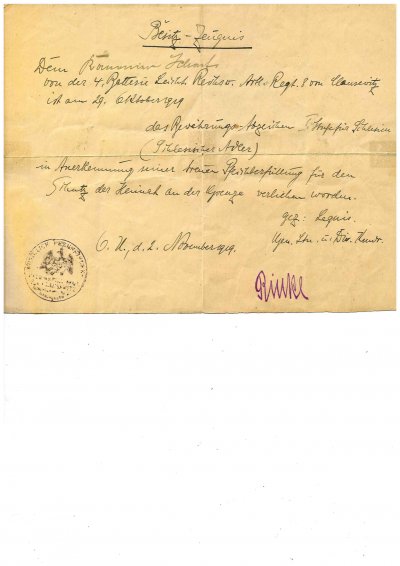 Besitz-Zeugnis
Dem Kanonier Scharf
von der 4. Batterie Leicht. Reichsw. Artl. Regt. 8 vom Clausewitz
ist am 29. Oktober 1919
das Bewährungs-Abzeichen Schlesien
(Schlesischer Adler)
in Anerkennung seiner treuen Pflichterfüllung für den
Schutz der Heimat an der Grenze verliehen worden.
gez: Lequis.
O. U., d. 2. November 1919.
Gen. Ltn. u. Div. Kmdr.
Rinke